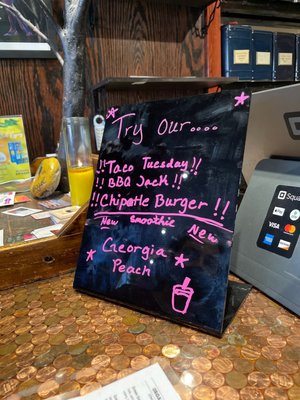 Try Our....
!! Taco Tuesday !!
!! BBQ Jack !!
!! Chipotle Burger !!
New Smoothie New
Georgia
Peach
Squa
VISA